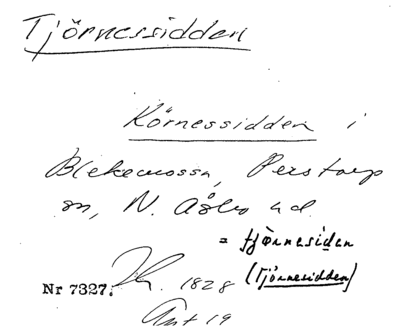 Tjörnessidden
Körnessidden i
Blekemossa, Perstorp
sn, N. Åsbo hd.
= tjörnesiden
(Tjörnesidden)
Nr 7327. 1828
Ant 19